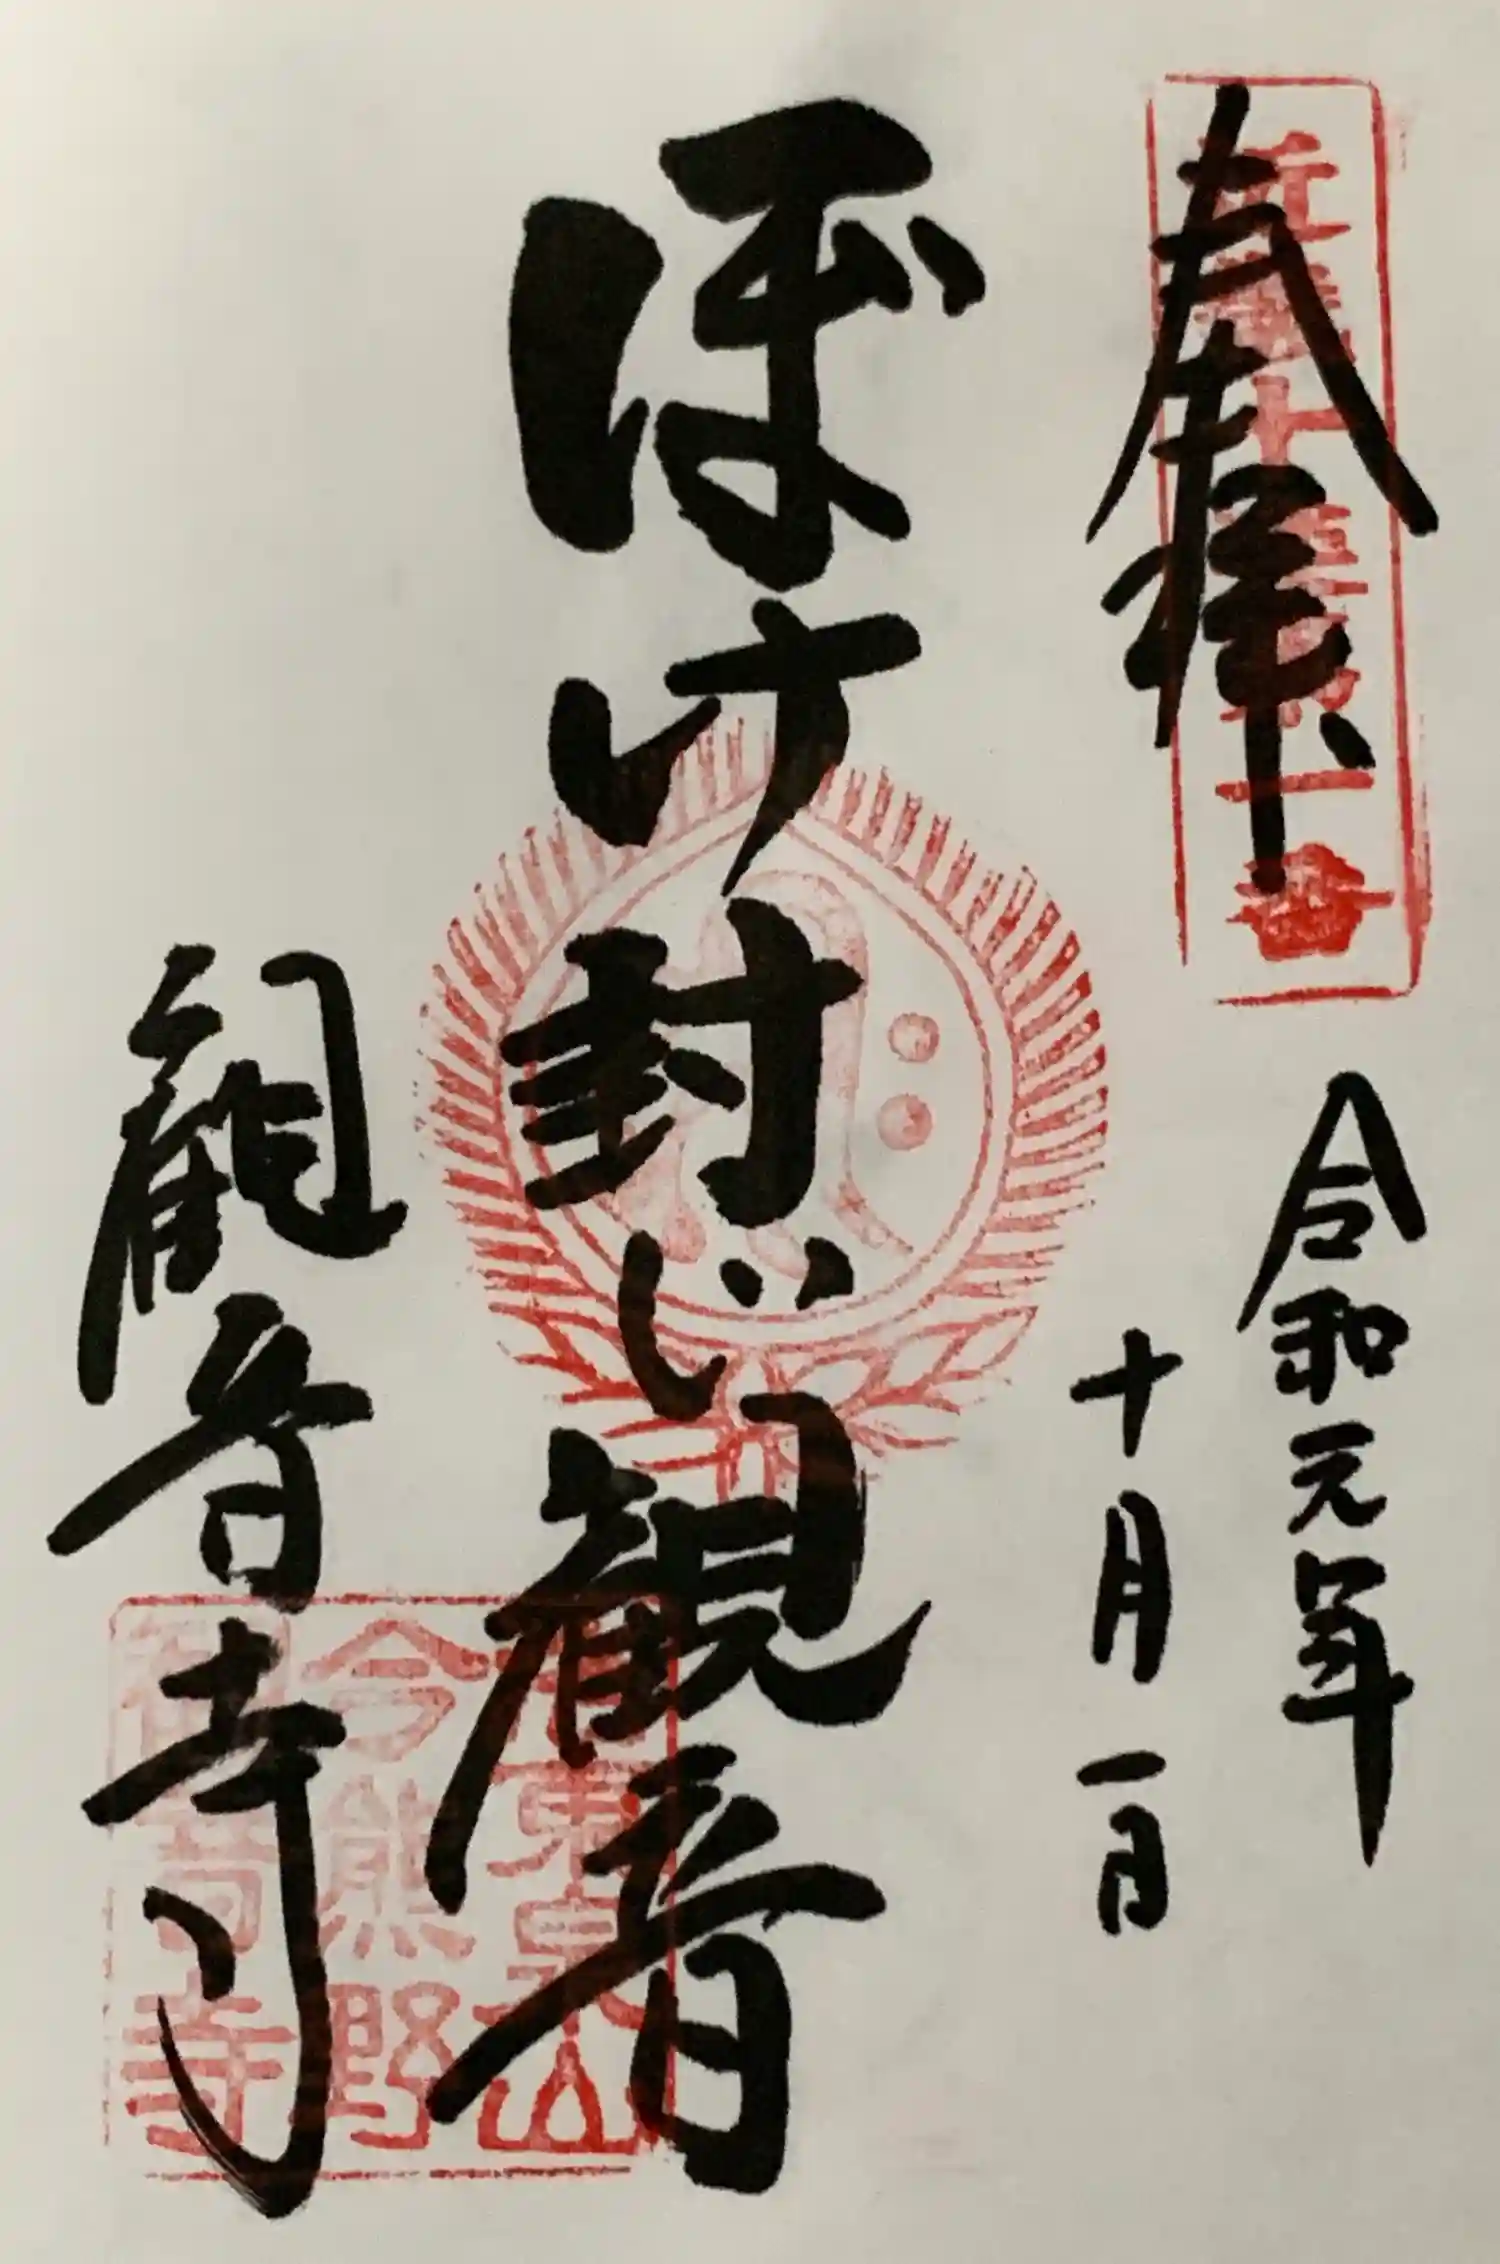 奉拝
令和元年
十月一日
ぼけ封じ観音
観音寺
今熊野